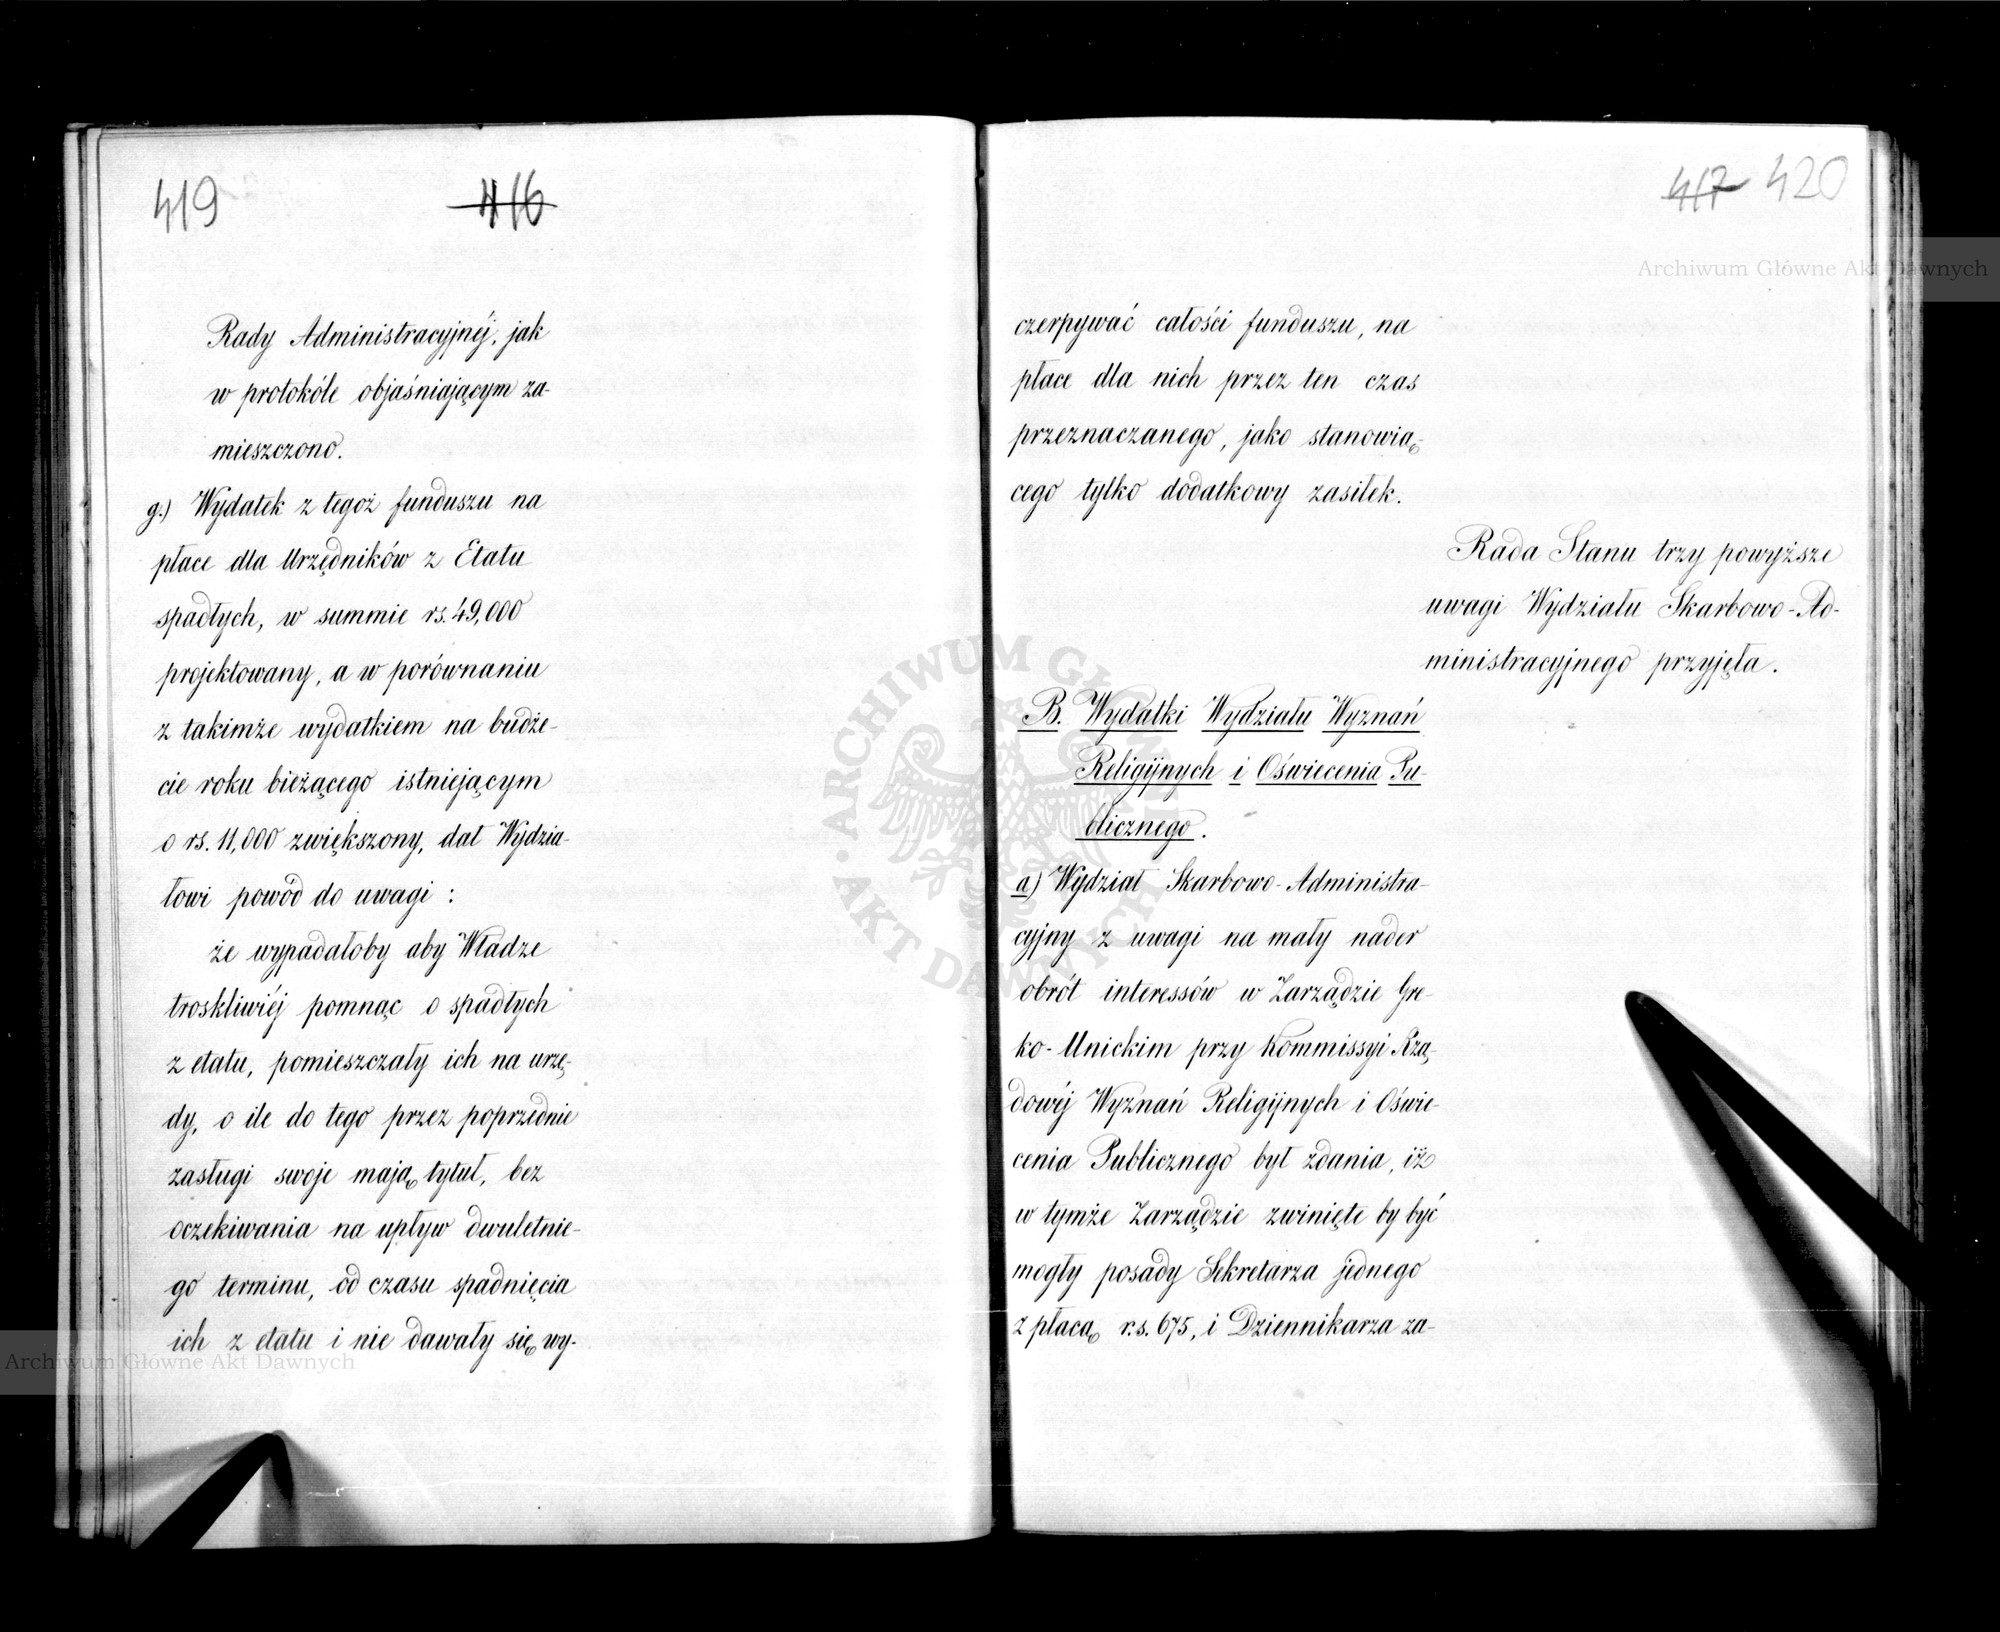 419
416
Rady Administracyjnéj, jak
w protokóle objaśniającym za-
mieszczono.
g.) Wydatek z tegoż funduszu na
płace dla Urzędników z Etatu
spadłych, w summie rs. 49,000
projektowany, a w porównaniu
z takimże wydatkiem na budże-
cie roku bieżącego istniejącym
o rs. 11,000 zwiększony, dał Wydzia-
łowi powód do uwagi :
że wypadałoby aby Władze
troskliwiéj pomnąc o spadłych
z etatu, pomieszczały ich na urzę-
dy, o ile do tego przez poprzednie
zasługi swoje mają tytuł, bez
oczekiwania na upływ dwuletnie-
go terminu, od czasu spadnięcia
ich z etatu i nie dawały się wy-
Archiwum Główne Akt Dawnych
417 420
Archiwum Główne Akt Dawnych
czerpywać całości funduszu, na
płace dla nich przez ten czas
przeznaczanego, jako stanowią-
cego tylko dodatkowy zasiłek.
Rada Stanu trzy powyższe
uwagi Wydziału Skarbowo-Ad-
ministracyjnego przyjęła.
B. Wydatki Wydziału Wyznań
Religijnych i Oświecenia Pu-
blicznego.
a) Wydział Skarbowo-Administra-
cyjny z uwagi na mały nader
obrót interessów w Zarządzie Gre-
ko-Unickim przy Kommissyi Rzą-
dowéj Wyznań Religijnych i Oświe-
cenia Publicznego był zdania, iż
w tymże Zarządzie zwinięte by być
mogły posady Sekretarza jednego
z płacą r.s. 675, i Dziennikarza za-
ARCHIWUM GŁÓWNE AKT DAWNYCH